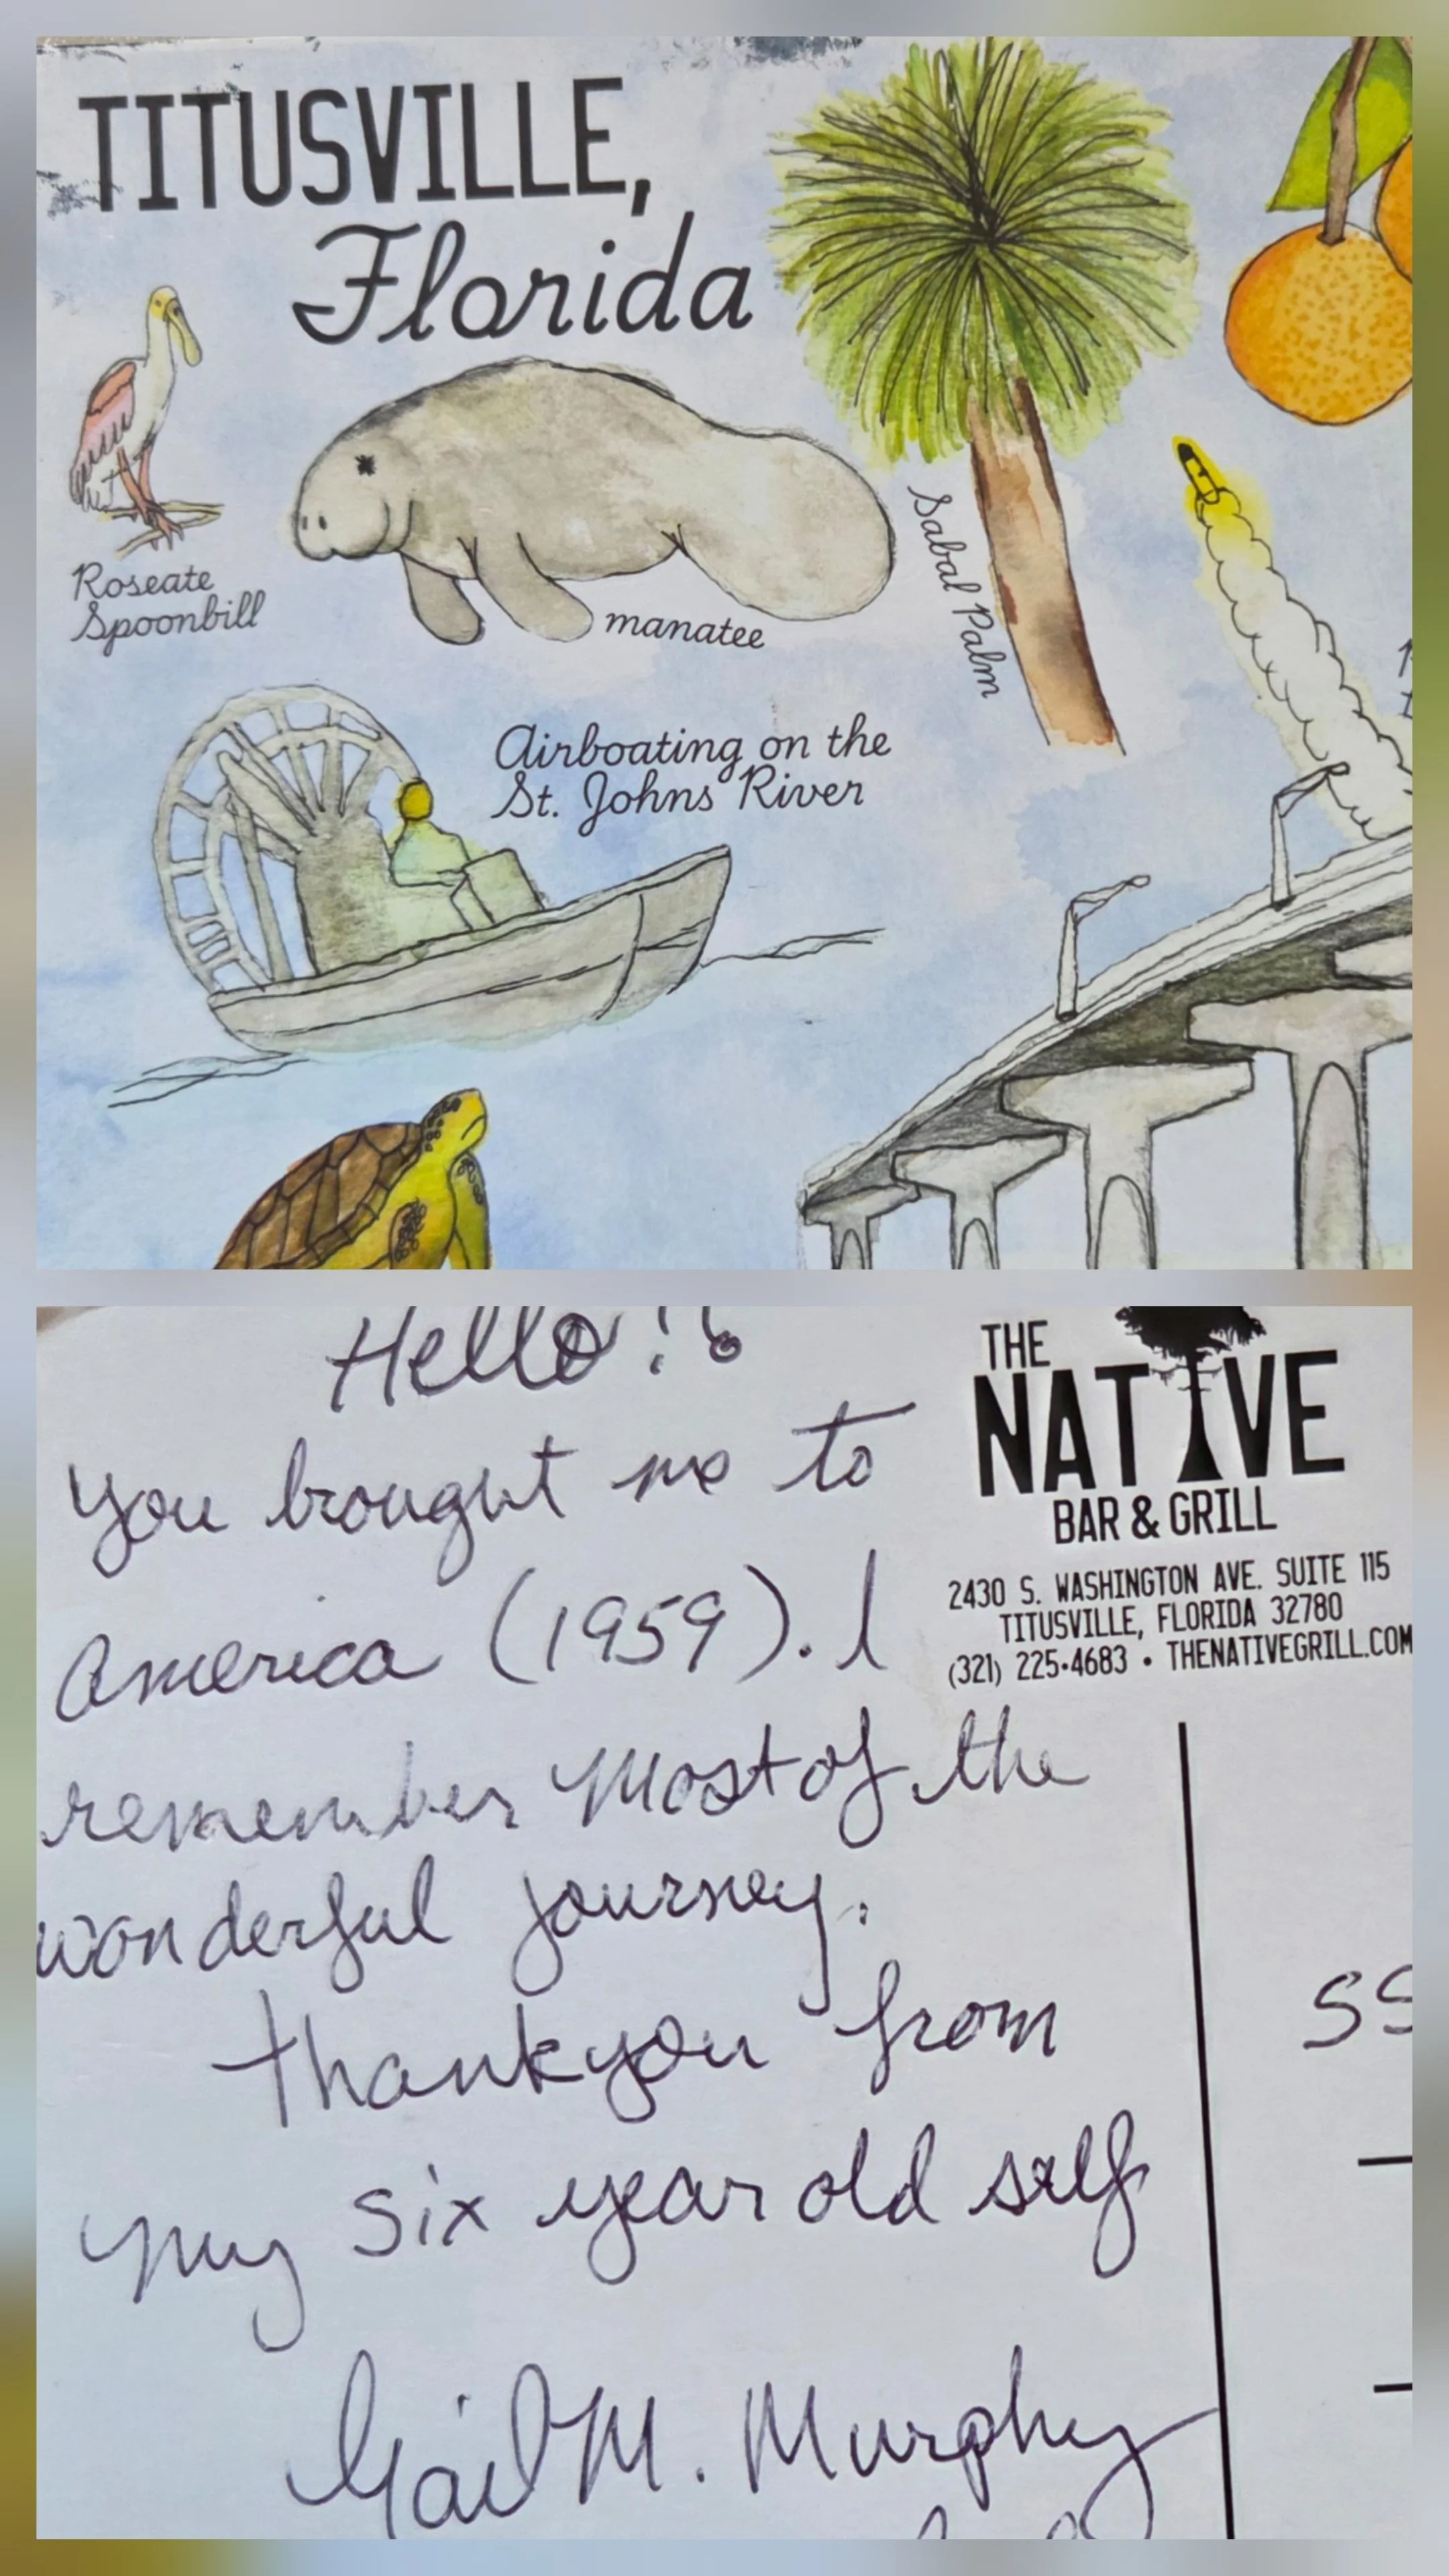 TITUSVILLE,
Florida
Roseate
Spoonbill
manatee
Sabal Palm
Airboating on the
St. Johns River
Hello!!
You brought me to
America (1959). I
remember Most of the
wonderful journey.
thankyou from
my six year old self
Gail M. Murphy
THE
NATIVE
BAR & GRILL
2430 S. WASHINGTON AVE. SUITE 115
TITUSVILLE, FLORIDA 32780
(321) 225•4683 • THENATIVEGRILL.COM
SS